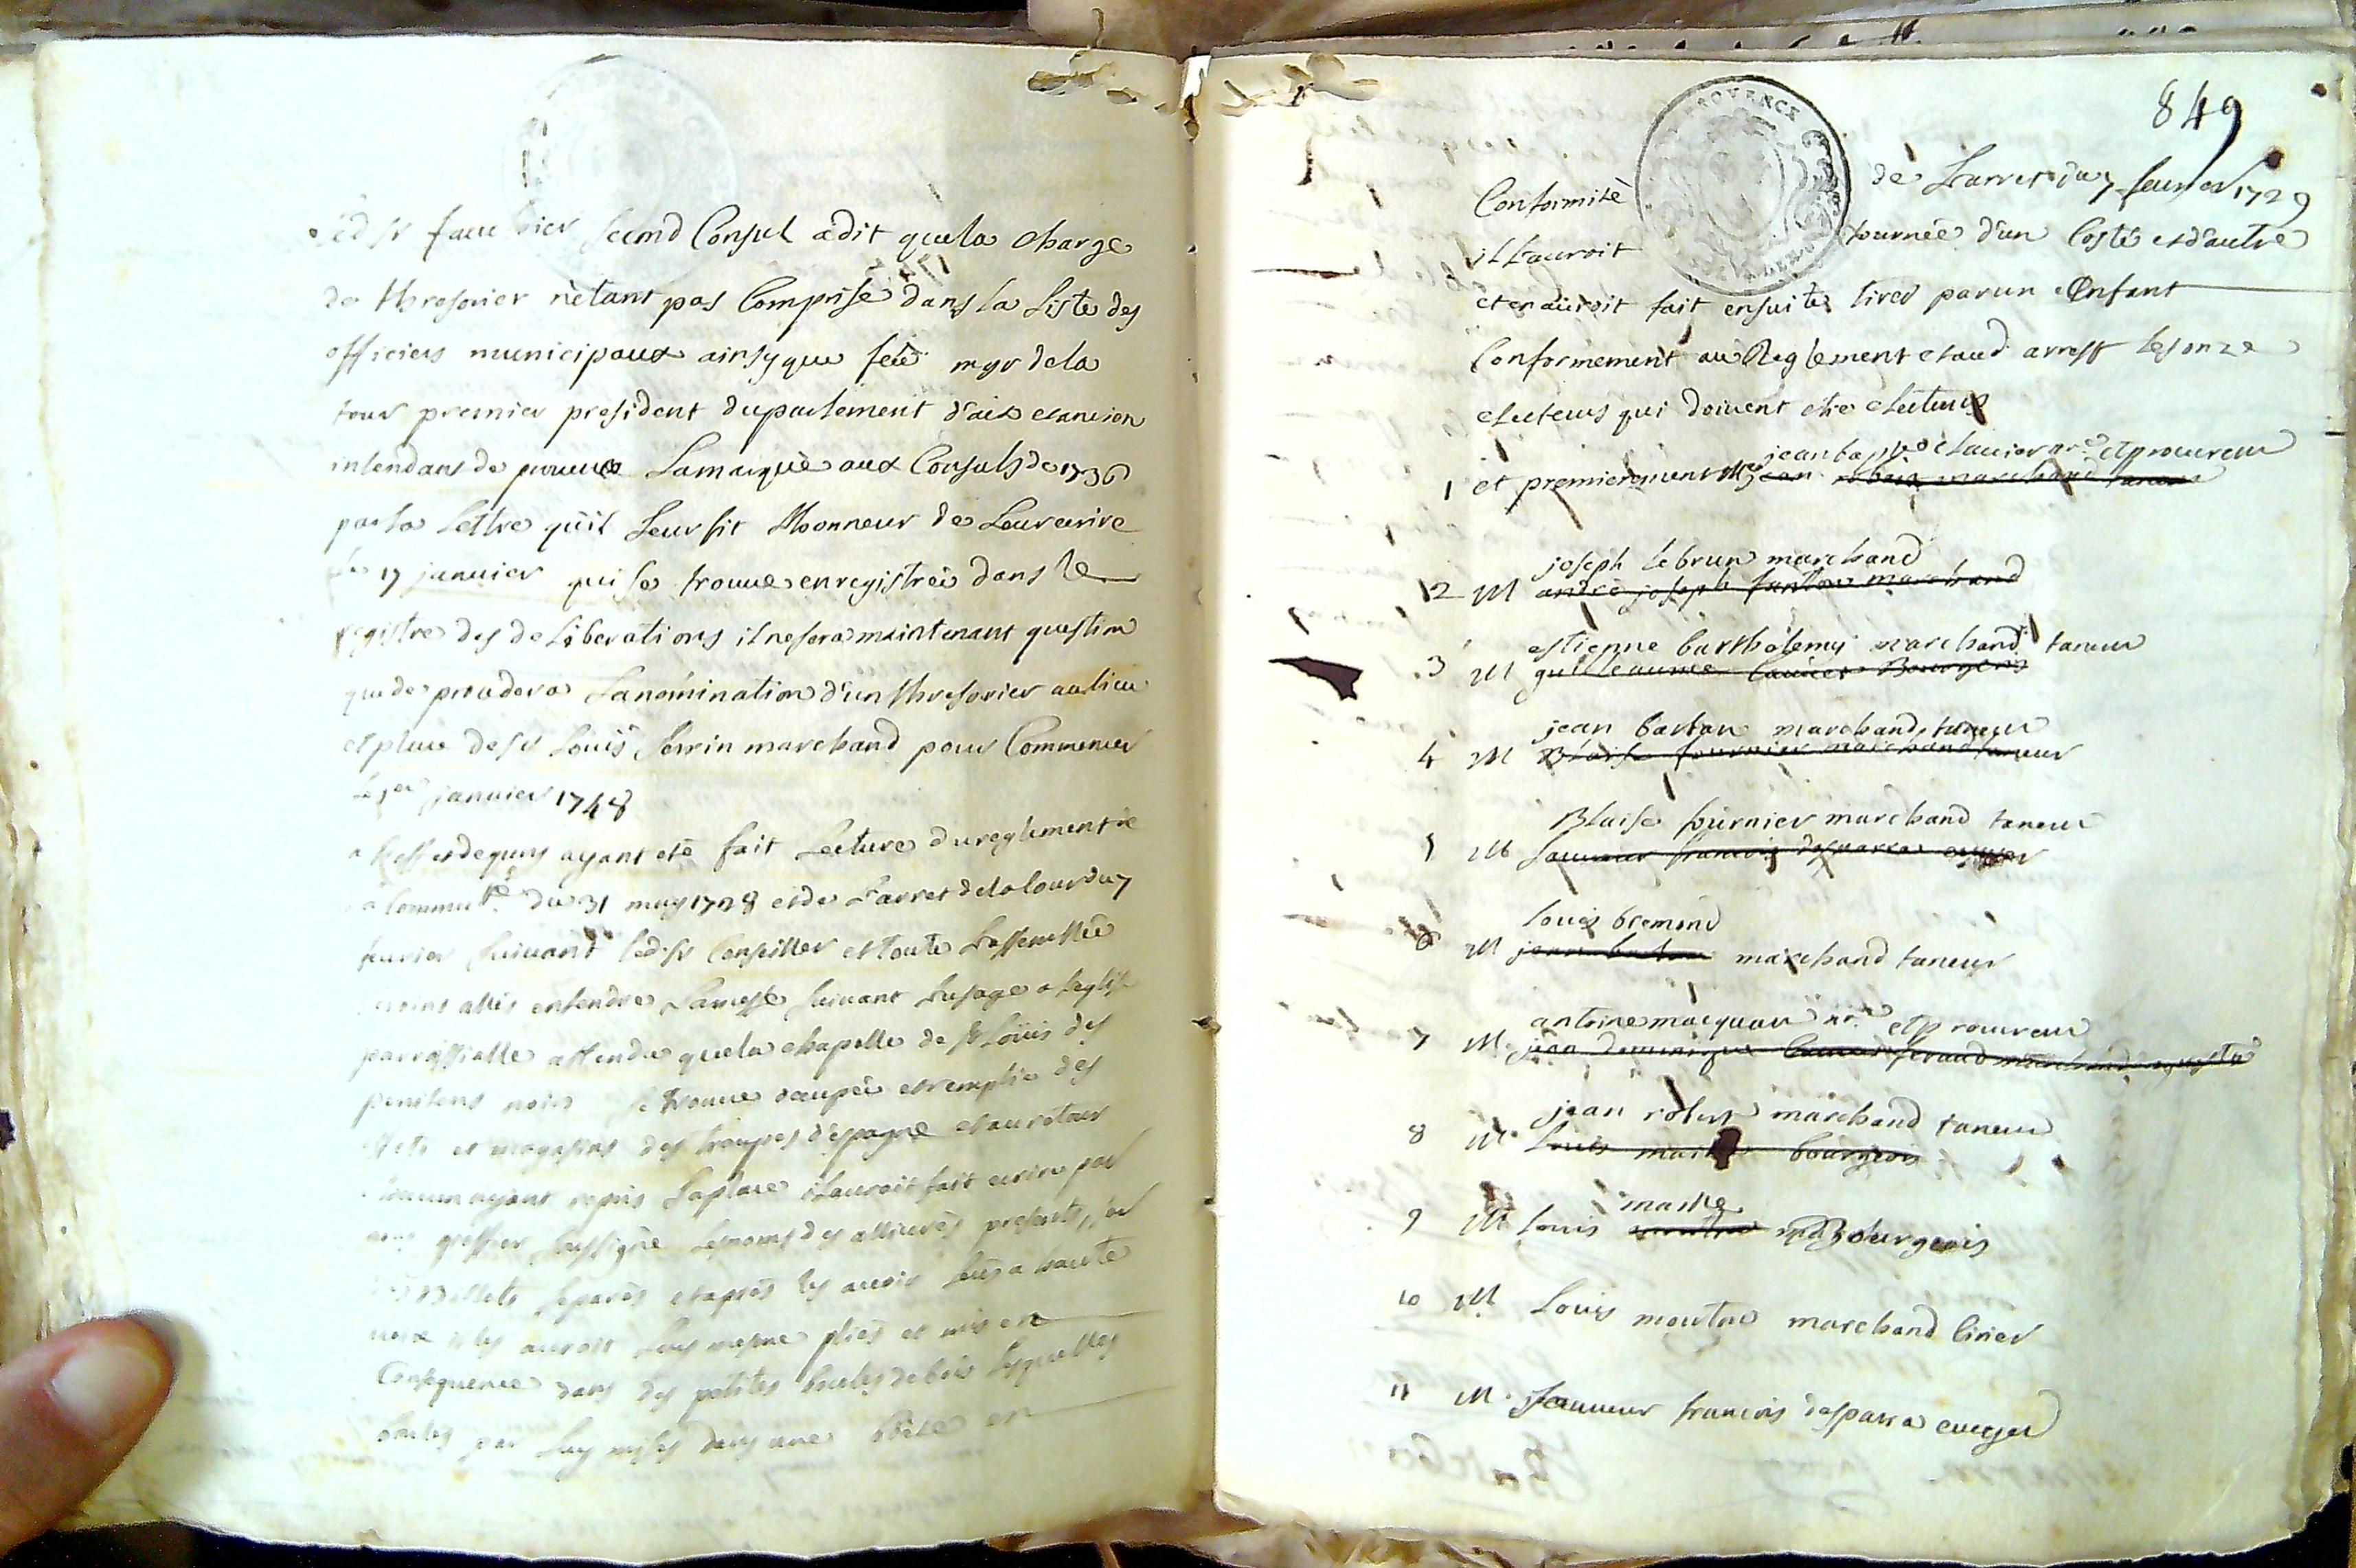 led sr fauchier second Consul a dit que la charge
de thresorier n'etant pas Comprise dans la Liste des
officiers municipaux ainsy que feu mgr de la
tour premier president du parlement d'aix et ancien
intendant de provence La marqué aux Consuls de 1736
par la lettre qu'il Leur fit Lhonneur de Leur ecrire
Le 17 janvier qui se trouve enregistrée dans le
registre des deLiberations il ne sera maintenant question
que de proceder a La nomination d'un thresorier au lieu
et place de sr Louis marchand pour Commencer
Le 1er janvier 1748
a Leffet de quoy ayant eté fait Lecture du reglement de
la Commuté. du 31 may 1728 et de Larret de la Cour du 7
fevrier suivant led sr Conseiller et toute Lassemblée
allés entendre La messe suivant Lusage a Leglise
parroissialle attendu que la chapelle de St Loüis des
penitens noirs se trouve occupée et remplie des
effets et magasins des troupes d'espagne et au retour
chacun ayant repris Sa place il auroit fait ecrire par
nous greffier soussigné Les noms des allivrés presents, sur
des Billets separés et après les avoir leus a haute
voix il les auroit Luy mesme pliés et mis en
Consequence dans des petites boules de bois Lesquelles
boules par Luy mises dans une boete en
849
Conformité de Larret du 7 fevrier 1729
il Lauroit tournée d'un Costé et d'autre
et en auroit fait ensuite tirer par un Enfant
Conformement au Reglement et aud arrest les onze
electeurs qui doivent etre electeurs
jean bapte clavier nre. et procureur
1 et premierement Me jean robert marchand taneur
joseph lebrun marchand
2 M andré joseph marchand
estienne barthelemy marchand taneur
3 M guilleaume Bourgeois
jean barban marchand taneur
4 M Blaise fournier marchand taneur
Blaise fournier marchand taneur
5 M Sauveur francois desparra
louis bremond
6 M jean marchand taneur
antoine macquan nre. et procureur
7 M jean dominique feraud marchand
jean robert marchand taneur
8 M Louis bourgeois
maille
9 M louis moutne md Bourgeois
10 M Louis moutne marchand cirier
11 M Sauveur francois desparra